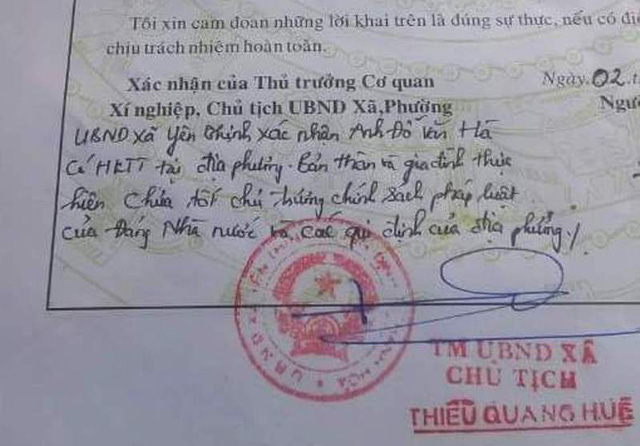 Tôi xin cam đoan những lời khai trên là đúng sự thực, nếu có đi
chịu trách nhiệm hoàn toàn.
Xác nhận của Thủ trưởng Cơ quan
Ngày 02 t
Xí nghiệp, Chủ tịch UBND Xã,Phường
Ngư
UBND xã Yên Thịnh xác nhận Anh Đỗ Văn Hà
Có HKTT tại địa phương. Bản thân và gia đình thực
hiện Chưa tốt chủ trương chính sách pháp luật
của Đảng Nhà nước và các qui định của địa phương./
TM UBND XÃ
CHỦ TỊCH
THIỀU QUANG HUẾ